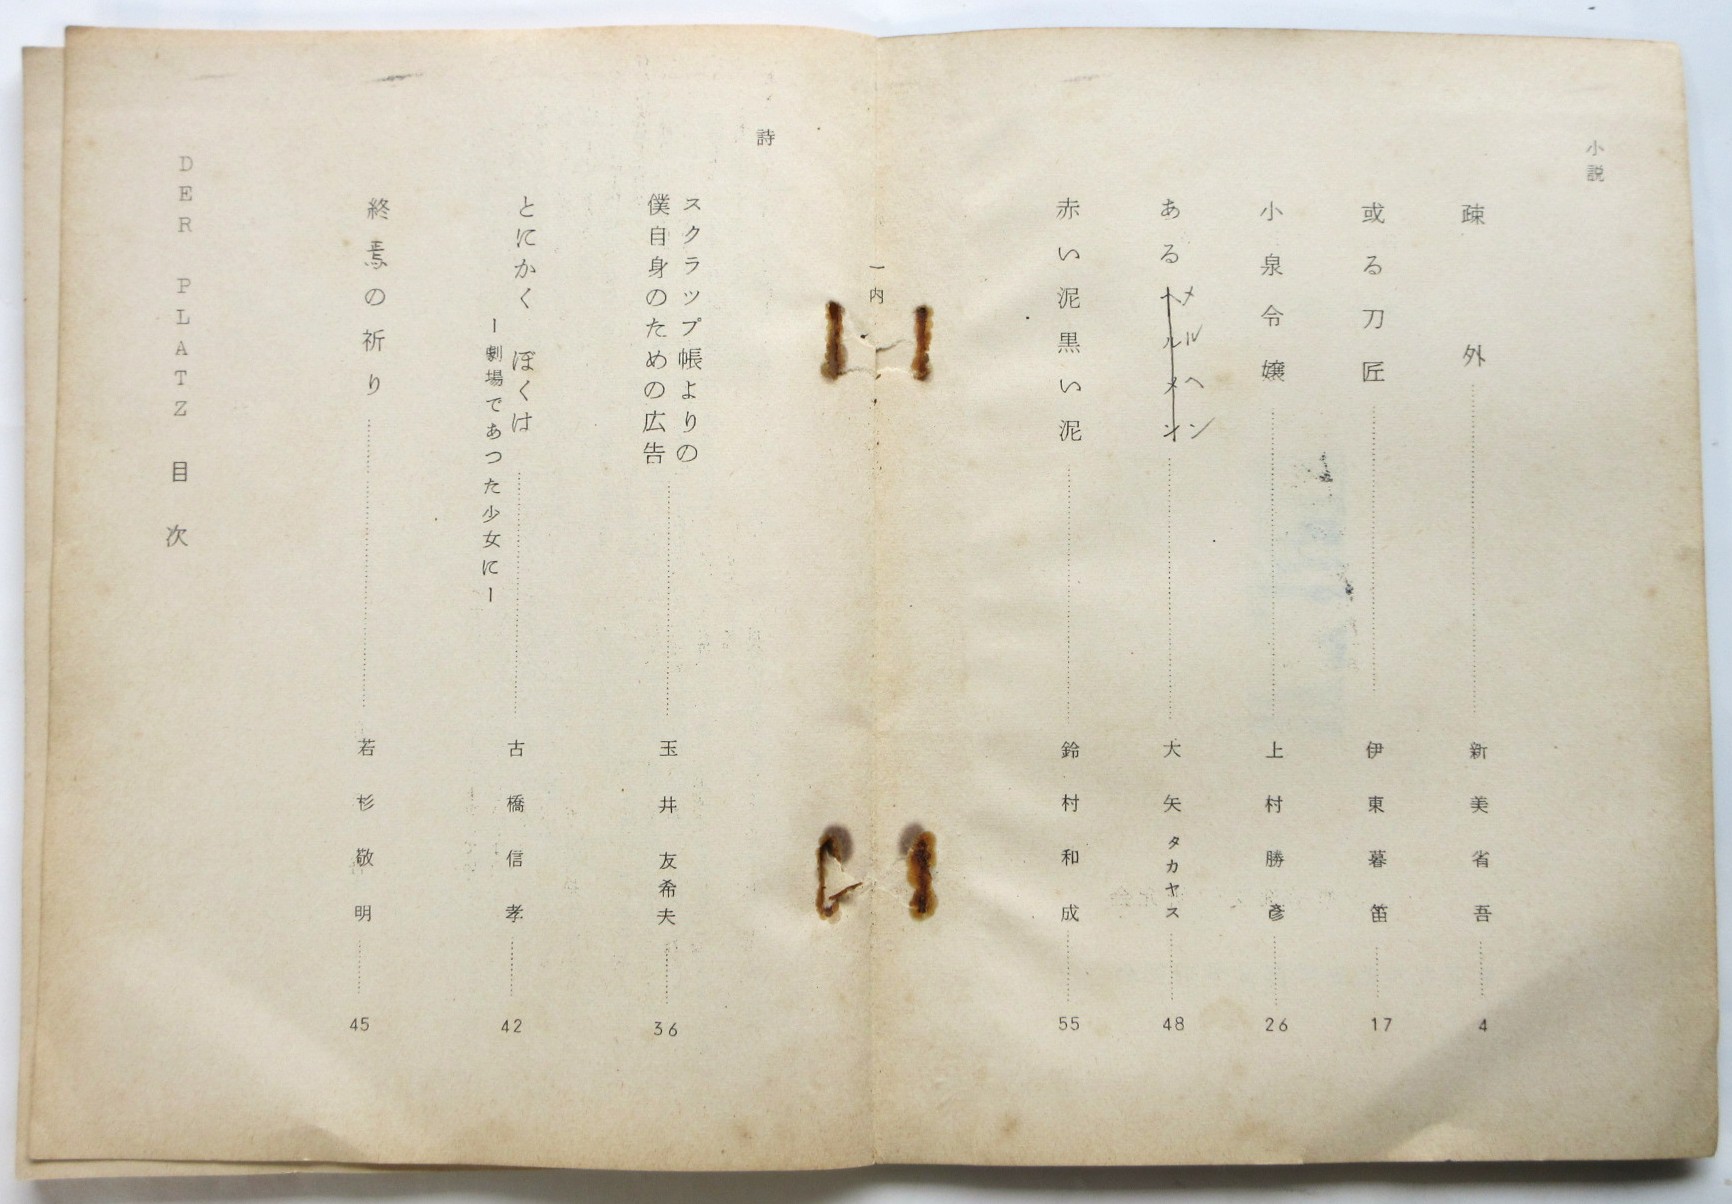 小説
疎外……新美省吾……4
或る刀匠……伊東暮笛……17
小泉令嬢……上村勝彦……26
あるヘルメン……大矢タカヤス……48
メルヘン
赤い泥黒い泥……鈴村和成……55
一内
詩
スクラップ帳よりの
僕自身のための広告……玉井友希夫……36
とにかく ぼくは……古橋信孝……42
ー劇場であつた少女にー
終焉の祈り……若杉敬明……45
DER PLATZ 目次